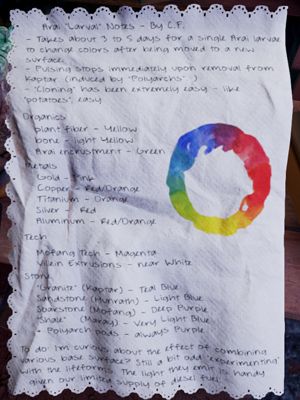 Arai "Larval" Notes - By C.F.
- Takes about 3 to 5 days for a single Arai larvae
to change colors after being moved to a new
surface.
- Pulsing stops immediately upon removal from
Kaptar (induced by "Polyarchs".)
- 'Cloning' has been extremely easy - like
"potatoes", easy
Organics
plant fiber - Yellow
bone - light Yellow
Arai encrustment - Green
Metals
Gold - Pink
Copper - Red/Orange
Titanium - Orange
Silver - Red
Aluminum - Red/Orange
Tech
Mofang Tech - Magenta
Villein Extrusions - near White
Stone
"Granite" (Kaptar) - Teal Blue
Sandstone (Hunrath) - Light Blue
Soarstone (Mofang) - Deep Purple
"Shale" (Maray) - Very Light Blue
* Polyarch pods - always Purple
To do: I'm curious about the effect of combining
various base surface? Still a bit odd 'experimenting'
with the lifeforms. The light they emit is handy
given our limited supply of diesel fuel.